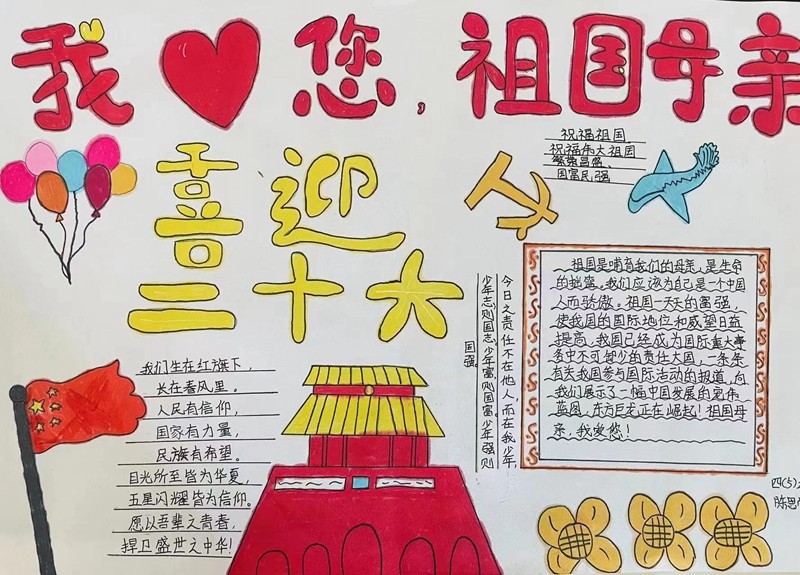 我 您,祖国母亲
喜迎
二十大
祝福祖国,
祝福伟大祖国
繁荣昌盛、
国富民强
我们生在红旗下,
长在春风里。
人民有信仰,
国家有力量,
民族有希望。
目光所至皆为华夏,
五星闪耀皆为信仰。
愿以吾辈之青春,
捍卫盛世之中华!
今日之责任不在他人,而在我少年,
少年志则国志,少年富则国富,少年强则
国强。
祖国是哺育我们的母亲,是生命
的摇篮。我们应该为自己是一个中国
人而骄傲。祖国一天天的富强,
使我国的国际地位和威望日益
提高。我国已经成为国际重大事
务中不可缺少的责任大国,一条条
有关我国参与国际活动的报道,向
我们展示了一幅中国发展的宏伟
蓝图,东方巨龙正在崛起!祖国母
亲,我爱您!
四(5)
陈思